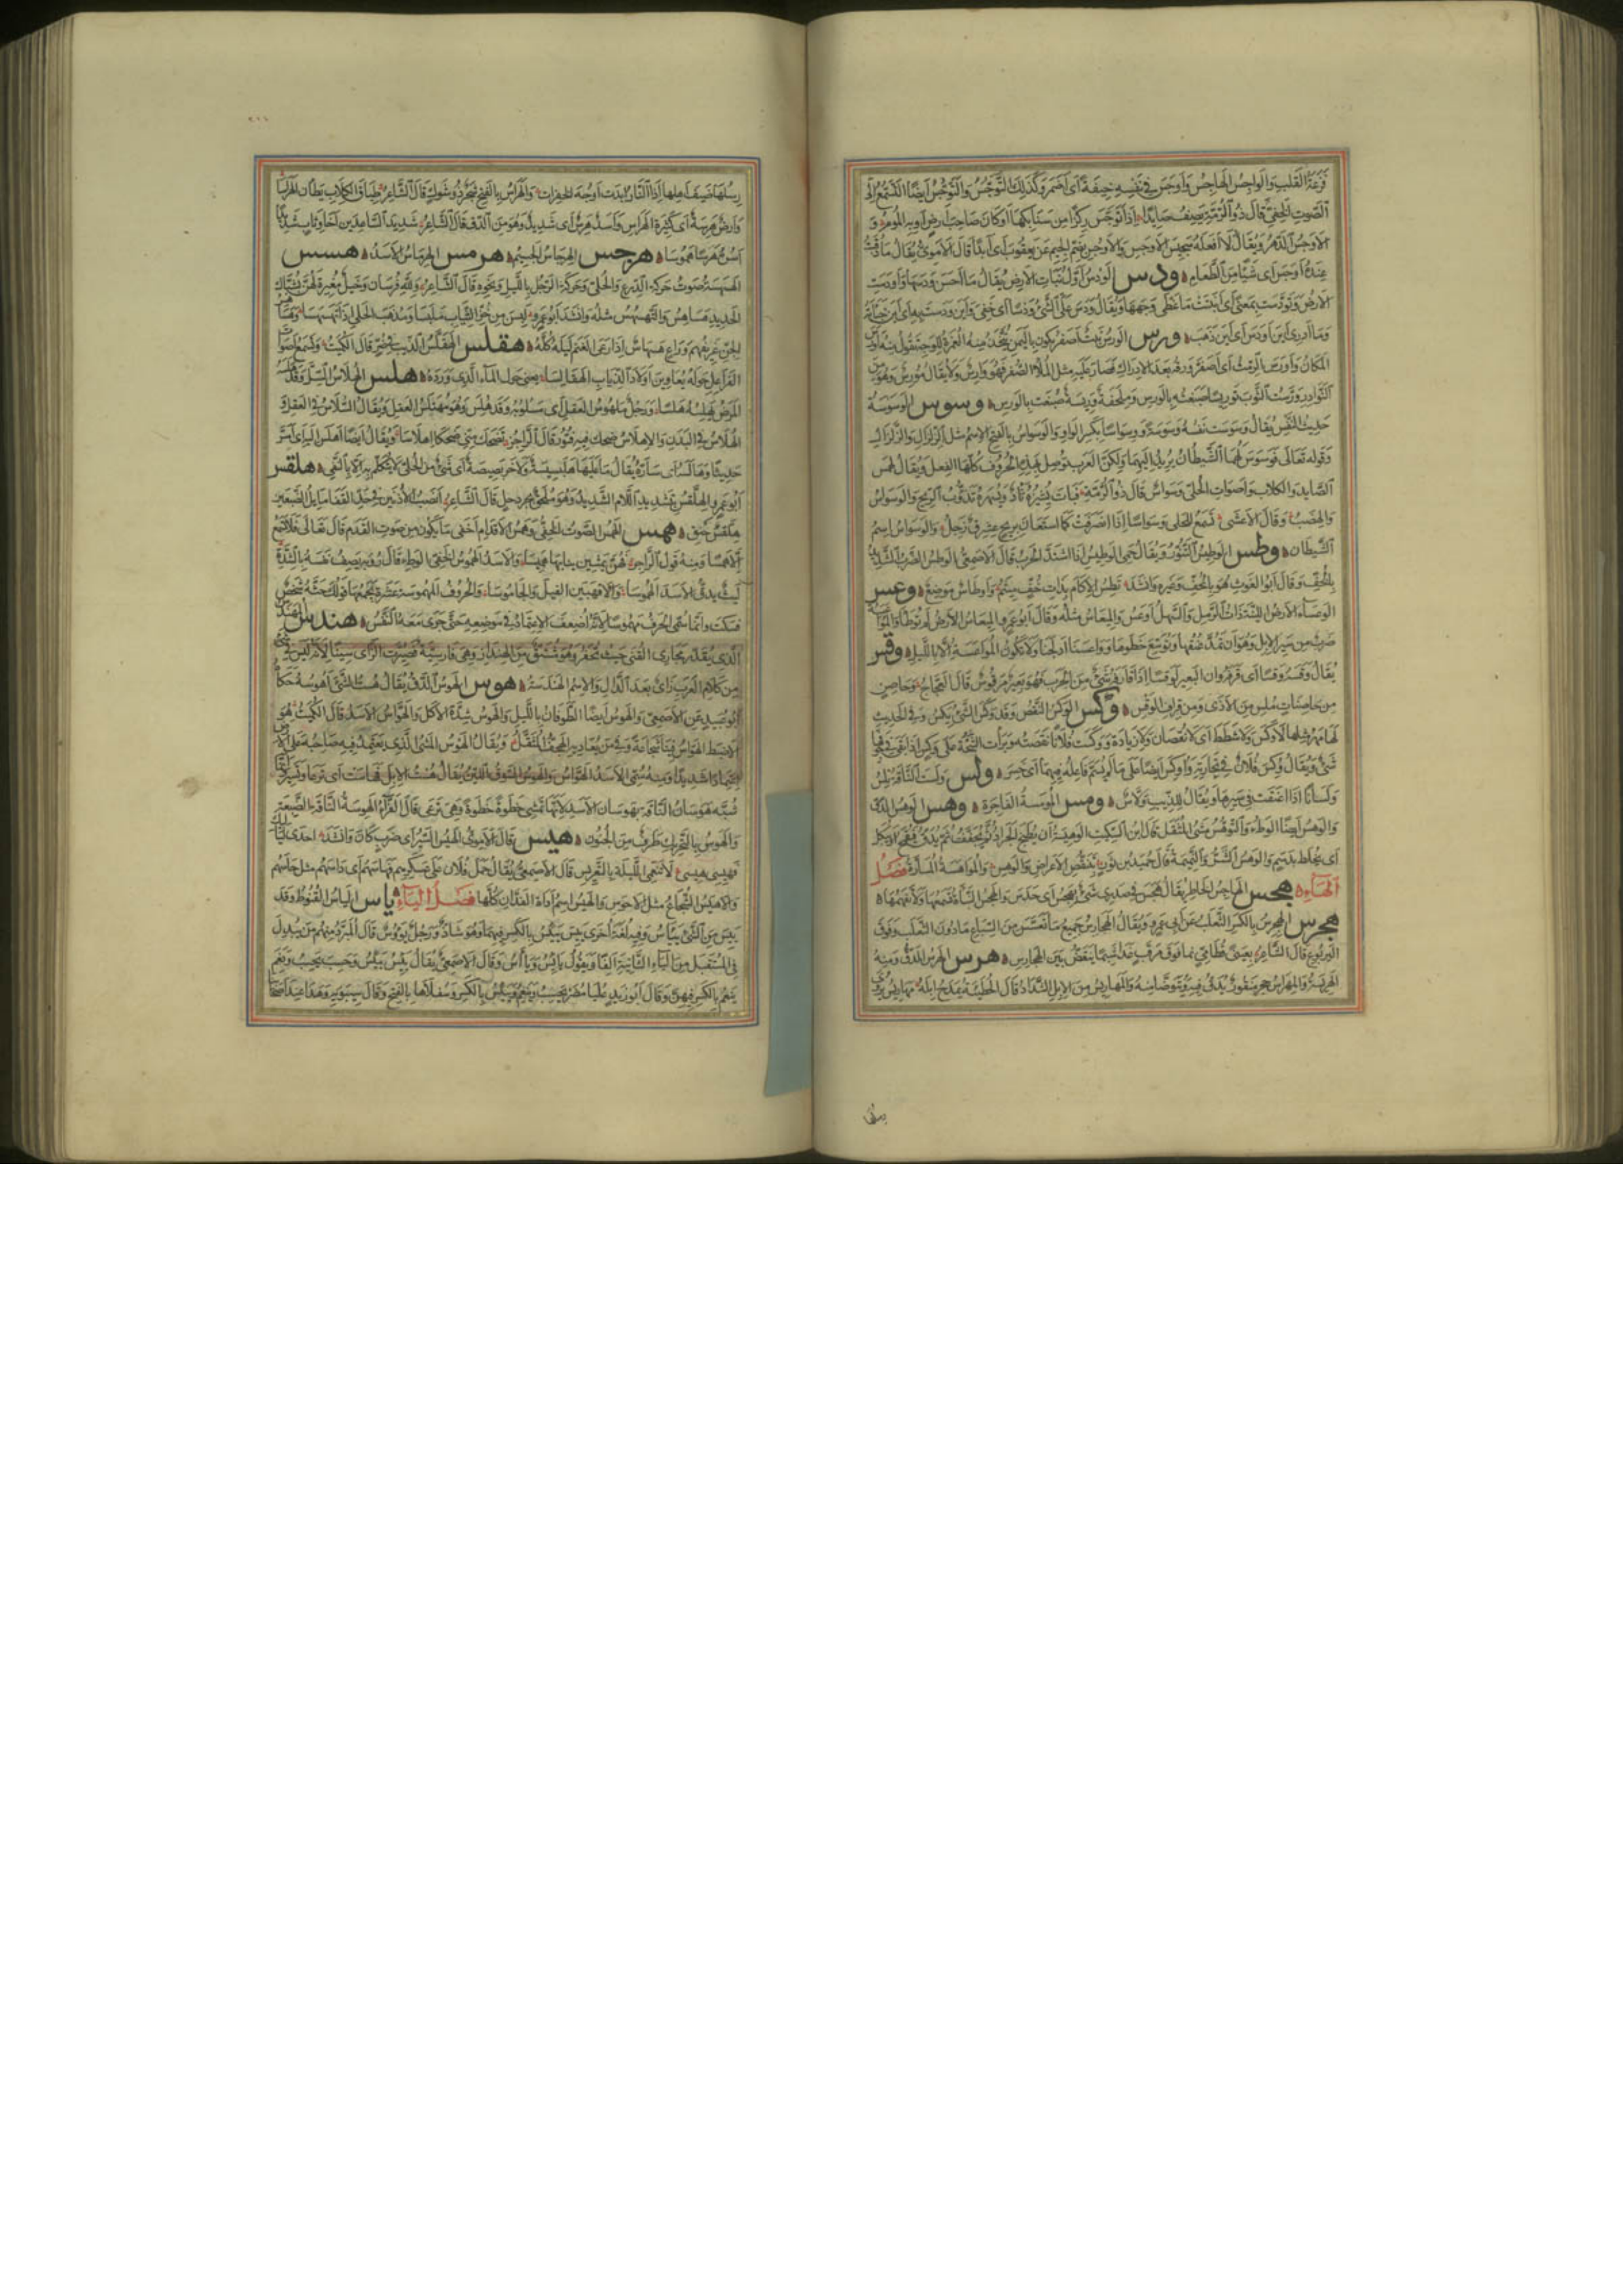 فزعة القلب والواجس الهاجس وأوجس في نفسه خيفة أي أضمر وكذلك التوجس والتوجس أيضا التسمع إلى
الصوت الخفي قال ذو الرمة يصف صايدا إذا توجس ركزا من سنابكها أو كان صاحب أرض أو به الموم و
الأوجس الدهر ويقال لا أفعله سجيس الأوجس والأوجس بضم الجيم عن يعقوب أي أبدا قال الأموي يقال ما ذقت
عنده أوجس أي شيئا من الطعام ودس الودس أول نبات الأرض يقال ما أحسن ودسها وأودست
الأرض وتودست بمعنى أي أنبتت ما غطى وجهها ويقال ودس علي الشيء ودسا أي خفي وأين ودست به أي أين خبأته
وما أدري أين ودس أي أين ذهب ورس الورس نبت أصفر يكون باليمن يتخذ منه الغمرة للوجه تقول منه أورس
المكان وأورس الرمث أي اصفر ورقه بعد الإدراك فصار عليه مثل الملاء الصفر فهو وارس ولا يقال مورس وهو من
النوادر وورست الثوب توريسا صبغته بالورس وملحفة وريسة صبغت بالورس وسوس الوسوسة
حديث النفس يقال وسوست نفسه وسوسة ووسواسا بكسر الواو والوسواس بالفتح الاسم مثل الزلزال والزلزال
وقوله تعالى فوسوس لهما الشيطان يريد إليهما ولكن العرب توصل بهذه الحروف كلها الفعل ويقال لهمس
الصايد والكلاب وأصوات الحلي وسواس قال ذو الرمة فبات يشئزه ثأد ويسهره تذؤب الريح والوسواس
والهضب وقال الأعشى تسمع للحلي وسواسا إذا انصرفت كما استعان بريح عشرق زجل والوسواس اسم
الشيطان وطس الوطيس التنور ويقال حمي الوطيس إذا اشتد الحرب قال الأصمعي الوطس الضرب الشديد
بالخف وقال أبو الغوث هو بالخف وغيره وأنشد تطس الإكام بذات خف ميثم وأوطاس موضع وعس
الوعساء الأرض اللينة ذات الرمل والسهل أوعس والميعاس مثله وقال أبو عمرو الميعاس الأرض لم توطأ والمواعسة
ضرب من سير الإبل وهو أن تمد عنقها وتوسع خطوها وواعسنا أدلجنا ولا تكون المواعسة إلا بالليل وقس
يقال وقسه وقسا أي قرفه وإن بالبعير لوقسا إذا قارفه شيء من الجرب فهو بعير موقوس قال العجاج وحاصن
من حاصنات ملس من الأذى ومن قراف الوقس وكس الوكس النقص وقد وكس الشيء يكس وفي الحديث
لها مهر مثلها لا وكس ولا شطط أي لا نقصان ولا زيادة ووكست فلانا نقصته وبرأت الشجة على وكس إذا بقي في جوفها
شيء ويقال وكس فلان في تجارته وأوكس أيضا على ما لم يسم فاعله فيهما أي خسر ولس ولست الناقة تلس
ولسانا إذا أعنقت في سيرها ويقال للذيب ولاس ومس المومسة الفاجرة وهس الوهس الدق
والوهس أيضا الوطء والتوهس مشي المثقل قال ابن السكيت الوهيسة أن يطبخ الجراد ثم يجفف ثم يدق فيقمح أو يبكل
أي يخلط بدسم والوهس الشر والنميمة قال حميد بن ثور بتنقص الأعراض والوهس والمواهسة المسارة فصل
الهاء هجس الهاجس الخاطر يقال هجس في صدري شيء يهجس أي حدس والهجس النبأة تسمعها ولا تفهمها
هجرس الهجرس بالكسر الثعلب عن أبي عمرو ويقال الهجارس جميع ما تعسس من السباع ما دون الثعلب وفوق
اليربوع قال الشاعر بعيني قطامي نما فوق مرقب غدا شبما ينقض بين الهجارس هرس الهرس الدق ومنه
الهريسة والمهراس حجر منقور يدق فيه ويتوضأ منه والمهاريس من الإبل الشداد قال الحطيئة يمدح إبله مهاريس يروي
رسلها ضيف أهلها إذا النار أبدت أوجه الخفرات والهراس بالفتح شجر ذو شوك قال الشاعر طباق الكلاب يطأن الهراسا
وأرض هرسة أي كثيرة الهراس وأسد هرس أي شديد وهو من الدق قال الشاعر شديد الساعدين أخا وثاب شديدا
أسره هرسا هموسا هرجس الهرجاس الجسيم هرمس الهرماس الأسد هسس
الهسهسة صوت حركة الدرع والحلي وحركة الرجل بالليل ونحوه قال الشاعر ولله فرسان وخيل مغيرة لهن بشباك
الحديد هساهس والتهسهس مثله وأنشد أبو عمرو لبسن من حر الثياب ملبسا ومذهب الحلي إذا تهسهسا
لجن عزيفهم وراع هسهاس إذا رعى الغنم ليله كله هقلس الهقلس الذيب في ضر قال الكميت وتسمع أصوات
الفراعل حوله يعاوين أولاد الذياب الهقالسا يعني حول الماء الذي ورده هلس الهلاس السل وقد هلسه
المرض يهلسه هلسا ورجل مهلوس العقل أي مسلوبه وقد هلس وهو مهتلس العقل ويقال السلاس في العقل و
الهلاس في البدن والإهلاس ضحك فيه فتور قال الراجز تضحك مني ضحكا إهلاسا ويقال أيضا أهلس إليه أي أسر
حديثا وهالسه أي ساره يقال ما عليها هلبسيسة ولا خربصيصة أي شيء من الحلي لا يتكلم به إلا بالنفي هلقس
أبو عمرو الهلقس بتشديد اللام الشديد وهو ملحق بجردحل قال الشاعر أنصب الأذنين في حد القفا مايل الضبعين
هلقس حنق همس الهمس الصوت الخفي وهمس الأقدام أخفى ما يكون من صوت القدم قال تعالى فلا تسمع
إلا همسا ومنه قول الراجز فهن يمشين بنا هميسا والأسد الهموس الخفي الوطء قال رؤبة يصف نفسه بالشدة
ليث يدق الأسد الهموسا والأقهبين الفيل والجاموسا والحروف المهموسة عشرة يجمعها قولك حثه شخص
فسكت وإنما سمي الحرف مهموسا لأنه أضعف الاعتماد في موضعه حتى جرى معه النفس هندس المهندس
الذي يقدر مجاري القني حيث تحفر وهو مشتق من الهنداز وهي فارسية فصيرت الزاي سينا لأنه ليس في شيء
من كلام العرب زاي بعد الدال والاسم الهندسة هوس الهوس الدق يقال هست الشيء أهوسه حكاه
أبو عبيد عن الأصمعي والهوس أيضا الطوفان بالليل والهوس شدة الأكل والهواس الأسد قال الكميت هو
الأضبط الهواس فينا شجاعة وفي من يعاديه الهجف المثقل ويقال الهوس المشي الذي يعتمد فيه صاحبه على الأرض
اعتمادا شديدا ومنه سمي الأسد الهواس والهوس السوق اللين يقال هست الإبل فهاست أي ترعى وتسير وإنما
شبه هوسان الناقة بهوسان الأسد لأنها تمشي خطوة خطوة وهي ترعى قال الفراء الهوسة الناقة الضبعة
والهوس بالتحريك طرف من الجنون هيس قال الأموي الهيس السير أي ضرب كان وأنشد إحدى لياليك
فهيسي هيسي لا تنعمي الليلة بالتعريس قال الأصمعي يقال حمل فلان على عسكرهم فهاسهم أي داسهم مثل حاسهم
والأهيس الشجاع مثل الأحوس والهيس اسم أداة الفدان كلها فصل الياء يأس اليأس القنوط وقد
يئس من الشيء ييأس وفيه لغة أخرى يئس ييئس بالكسر فيهما وهو شاذ ورجل يؤوس قال المبرد منهم من يبدل
في المستقبل من الياء الثانية ألفا ويقول يائس وياأس وقال الأصمعي يقال يئس ييئس وحسب يحسب ونعم
ينعم بالكسر فيهن وقال أبو زيد عليا مضر يحسب وينعم وييئس بالكسر وسفلاها بالفتح وقال سيبويه وهذا عند أصحابنا